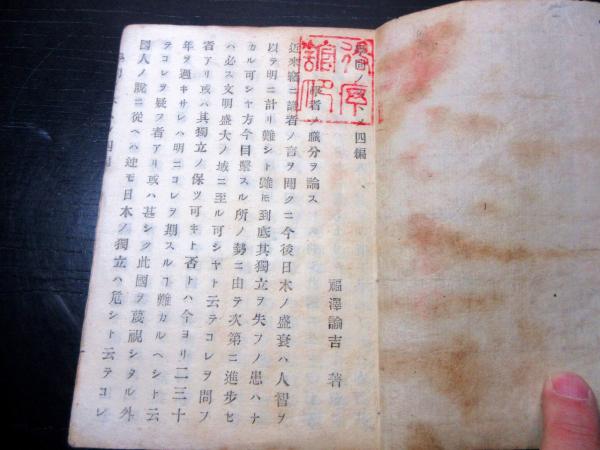 學問ノスヽメ四編
學者ノ職分ヲ論ス
福澤諭吉 著
近來竊ニ識者ノ言ヲ聞クニ今後日本ノ盛衰ハ人智ヲ
以テ明ニ計リ難シト雖𪜈到底其獨立ヲ失フノ患ハナ
カル可シヤ方今目擊スル所ノ勢ニ由テ次第ニ進步セ
ハ必ス文明盛大ノ域ニ至ル可シヤト云テコレヲ問フ
者アリ或ハ其獨立ノ保ツ可キト否トハ今ヨリ二三十
年ヲ過キサレハ明ニコレヲ期スルヿ難カルヘシト云
テコレヲ疑フ者アリ或ハ甚シク此國ヲ蔑視シタル外
國人ノ說ニ從ヘハ迚モ日本ノ獨立ハ危シト云テコレ